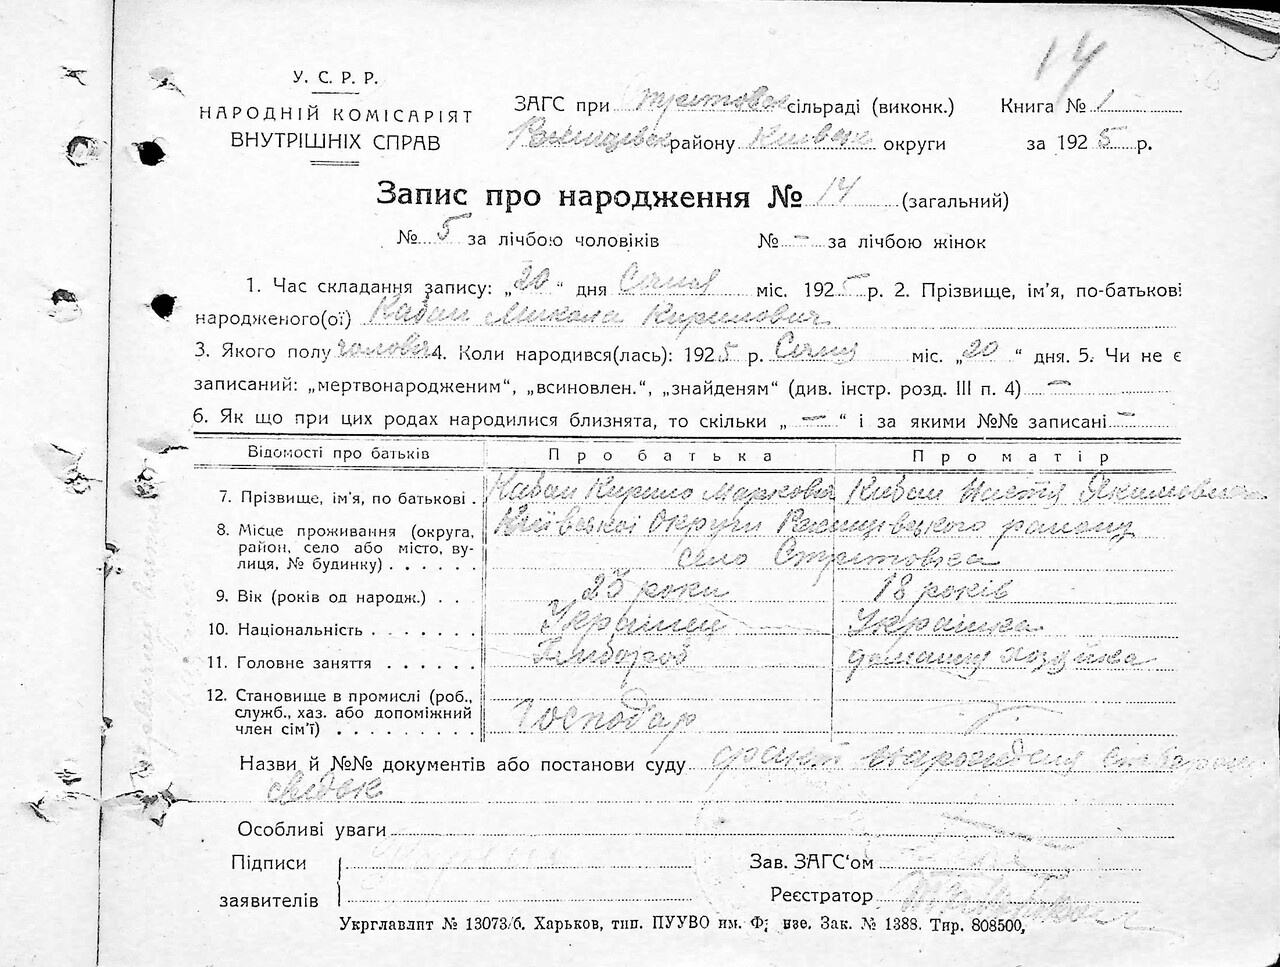 14
У. С. Р. Р.
НАРОДНІЙ КОМІСАРІЯТ
ВНУТРІШНІХ СПРАВ
ЗАГС при сільраді (виконк.) Книга № 1
району Київськ округи за 1925 р.
Запис про народження № 14 (загальний)
№ 5 за лічбою чоловіків № — за лічбою жінок
1. Час складання запису: „20“ дня Січня міс. 1925 р. 2. Прізвище, ім'я, по-батькові
народженого(ої) Кабан Микола Кирилович
3. Якого полу чоловіч 4. Коли народився(лась): 1925 р. Січня міс. „20“ дня. 5. Чи не є
записаний: „мертвонародженим“, „всиновлен.“, „знайденям“ (див. інстр. розд. III п. 4) —
6. Як що при цих родах народилися близнята, то скільки „ — “ і за якими №№ записані —
Відомості про батьків Про батька Про матір
7. Прізвище, ім'я, по батькові . Кабан Кирило Маркович Кабан Настя Якимовна
8. Місце проживання (округа, Київської округи району
район, село або місто, ву- село Стритовка
лиця, № будинку) . . . . . .
9. Вік (років од народж.) . . 25 роки 18 років
10. Національність . . . . . . . Українец Українка
11. Головне заняття . . . . . . Хлібороб домашня хозяйка
12. Становище в промислі (роб.,
служб., хаз. або допоміжний Господар
член сім'ї) . . . . . . . . .
Назви й №№ документів або постанови суду факт народження
свідок
Особливі уваги
Підписи Зав. ЗАГС'ом
заявителів Реєстратор
Укрглавлит № 13073/б. Харьков, тип. ПУУВО им. Ф; нзе. Зак. № 1388. Тир. 808500,